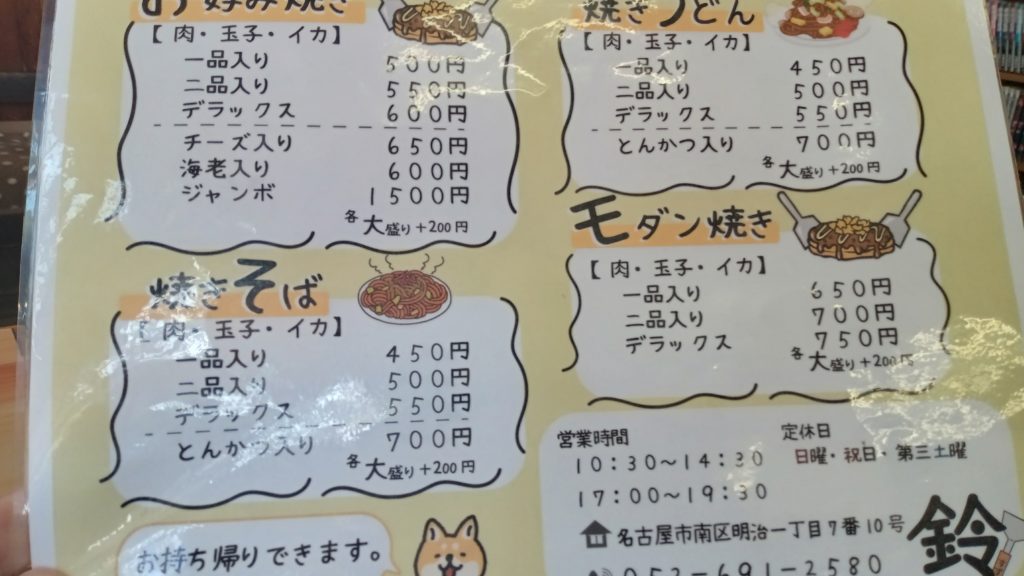 お好み焼き
【肉・玉子・イカ】
一品入り 500円
二品入り 550円
デラックス 600円
チーズ入り 650円
海老入り 600円
ジャンボ 1500円
各大盛り+200円
焼きそば
【肉・玉子・イカ】
一品入り 450円
二品入り 500円
デラックス 550円
とんかつ入り 700円
各大盛り+200円
お持ち帰りできます。
焼きうどん
【肉・玉子・イカ】
一品入り 450円
二品入り 500円
デラックス 550円
とんかつ入り 700円
各大盛り+200円
モダン焼き
【肉・玉子・イカ】
一品入り 650円
二品入り 700円
デラックス 750円
各大盛り+200円
営業時間
10:30~14:30
17:00~19:30
定休日
日曜・祝日・第三土曜
名古屋市南区明治一丁目7番10号
052-691-2580
鈴